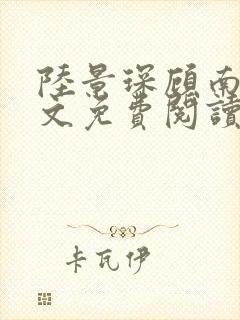 陸景琛顧南
文免費閱讀
卡瓦伊